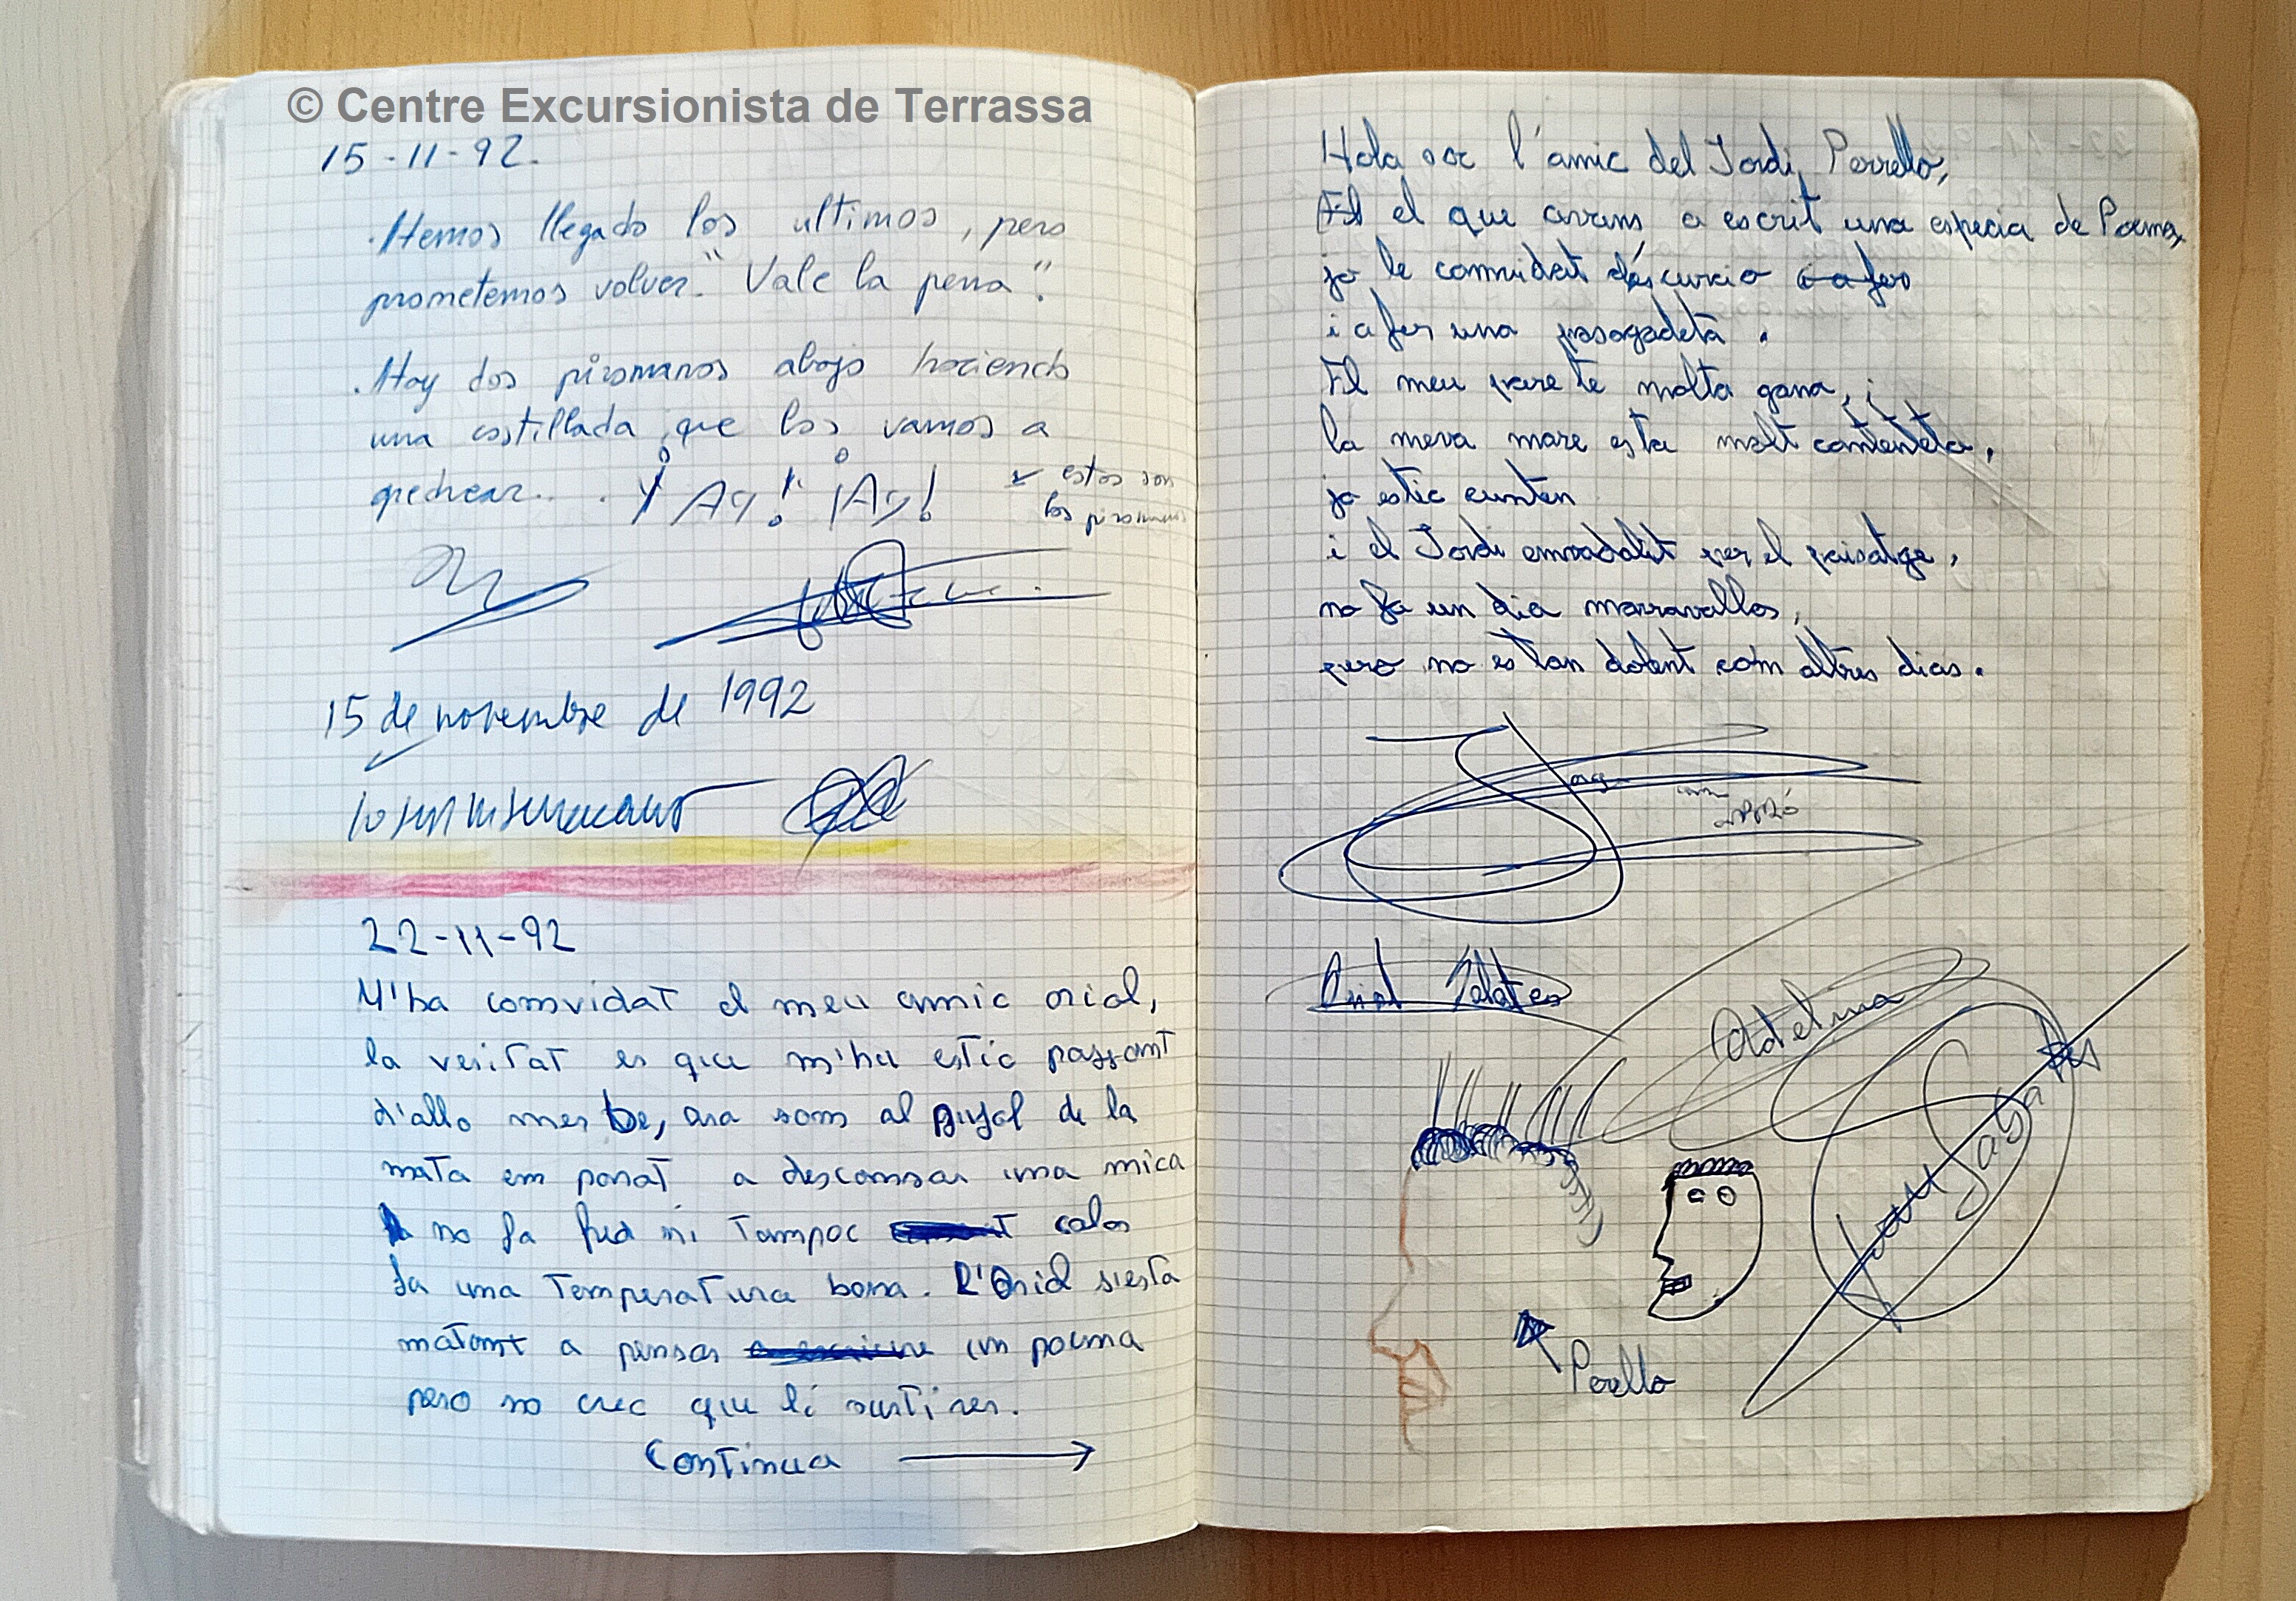 © Centre Excursionista de Terrassa
15-11-92.
.Hemos llegado los ultimos, pero
prometemos volver. "Vale la pena".
.Hay dos piromanos abajo haciendo
una costillada, que los vamos a
apedrear... ¡Ay! ¡Ay!
estos son
los piromanos
15 de novembre de 1992
22-11-92
M'ha comvidat el meu amic oriol,
la veritat es que m'hu estic passant
d'allo mes be, ara som al pujol de la
mata em parat a descamsar una mica
no fa fred ni tampoc calor
fa una temperatura bona. L'Oriol s'esta
matant a pensar un poema
pero no crec que li surti res.
Continua
Hola soc l'amic del Jordi Perrello,
Es el que avans a escrit una especia de Poema,
jo le comvidat d'escurcio i a fer
i a fer una passagadeta.
El meu pare te molta gana, i
la meva mare esta molt contenteta,
jo estic cunten
i el Jordi embadalit per el paisatge,
no fa un dia marravallos,
pero no es tan dolent com altres dias.
Oriol Sabates
Adelina
Joan Sabates
Perello